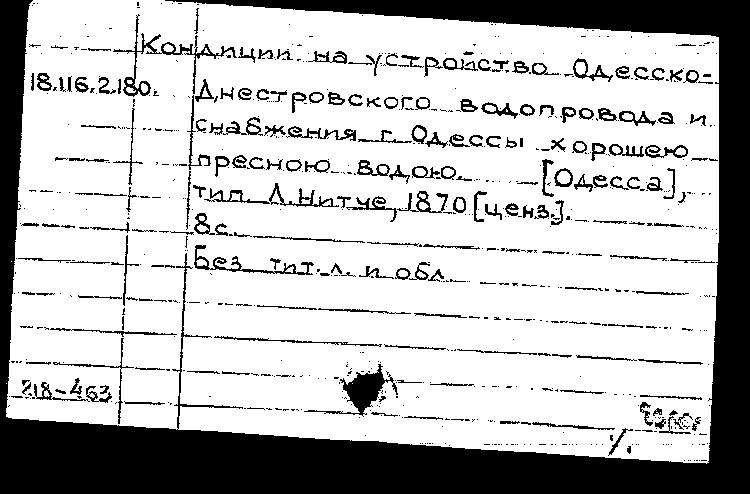 Кондиции на устройство Одесско-
18.116.2.180. Днестровского водопровода и
снабжения г. Одессы хорошею
пресною водою. [Одесса],
тип. Л. Нитче, 1870 [ценз.].
8с.
Без тит. л. и обл.
218-463